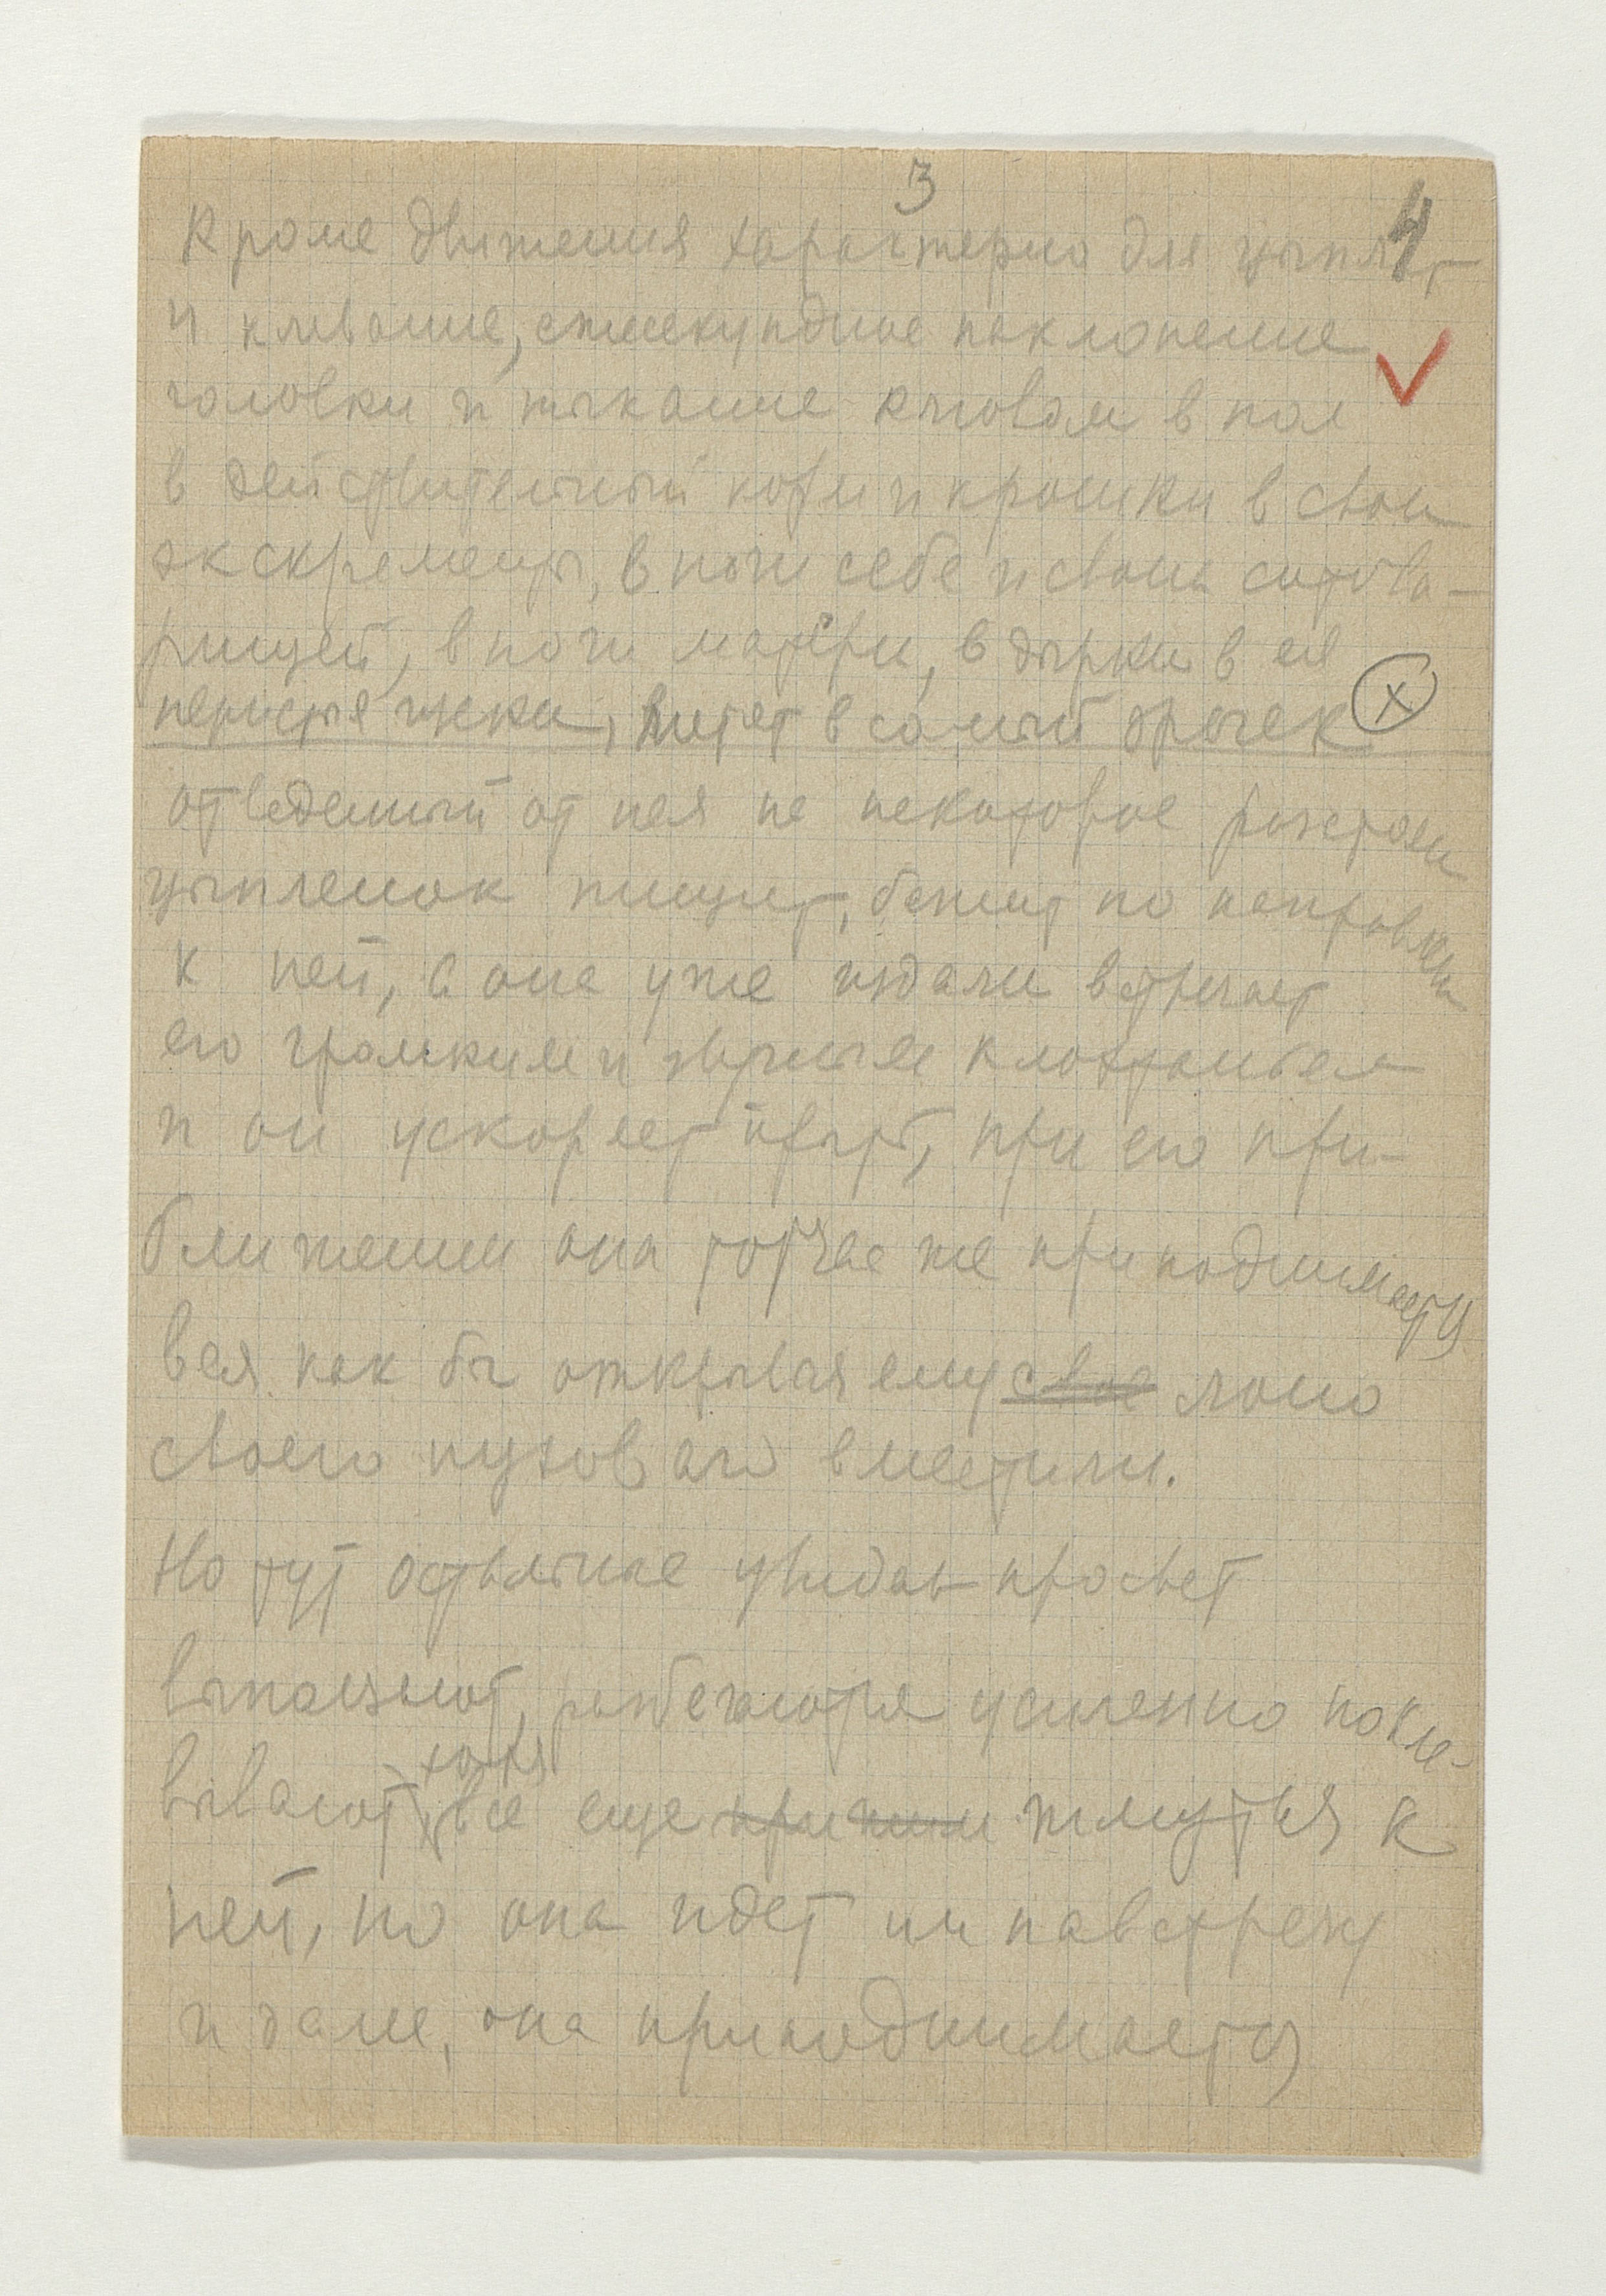 3
4
Кроме движения характерно для цыплят
и клевание, ежесекундное наклонение
головки и тыкание клювом в пол
в действительный корм и крошки в свои
экскременты, в ноги себе и своих сотова-
рищей, в ноги матери, в дырки в ея
перистые щеки, метет в самый зрачек
отведенный от нея на некоторое расстояни
цыпленок пищит, бежит по направлени
к ней, а она уже издали встречает
его громким и звучным клохтаньем
и он ускоряет прыть, при его при-
ближении она тотчас же приподнимается
вся как бы открывая ему свое лоно
своего пухового вместили.
Но тут остальные увидав просвет
выползают, разбегаются усиленно покле-
хотя
вывают, все еще при ними жмутся к
ней, но она идет им навстречу
и далее, она приподнимается